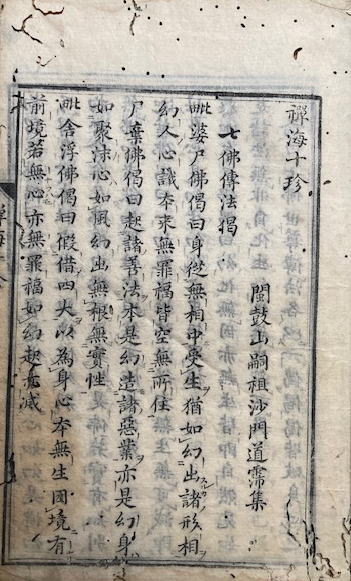 禪海十珍
閩鼓山嗣祖沙門道霈集
七佛傳法揭
毗婆尸佛偈曰身從無相中受生猶如幻出諸形相
幻人心識本來無罪福皆空無所住
尸棄佛偈曰起諸善法本是幻造諸惡業亦是幻身
如聚沫心如風幻出無根無實性
毗舍浮佛偈曰假借四大以為身心本無生因境有
前境若無心亦無罪福如幻起亦滅